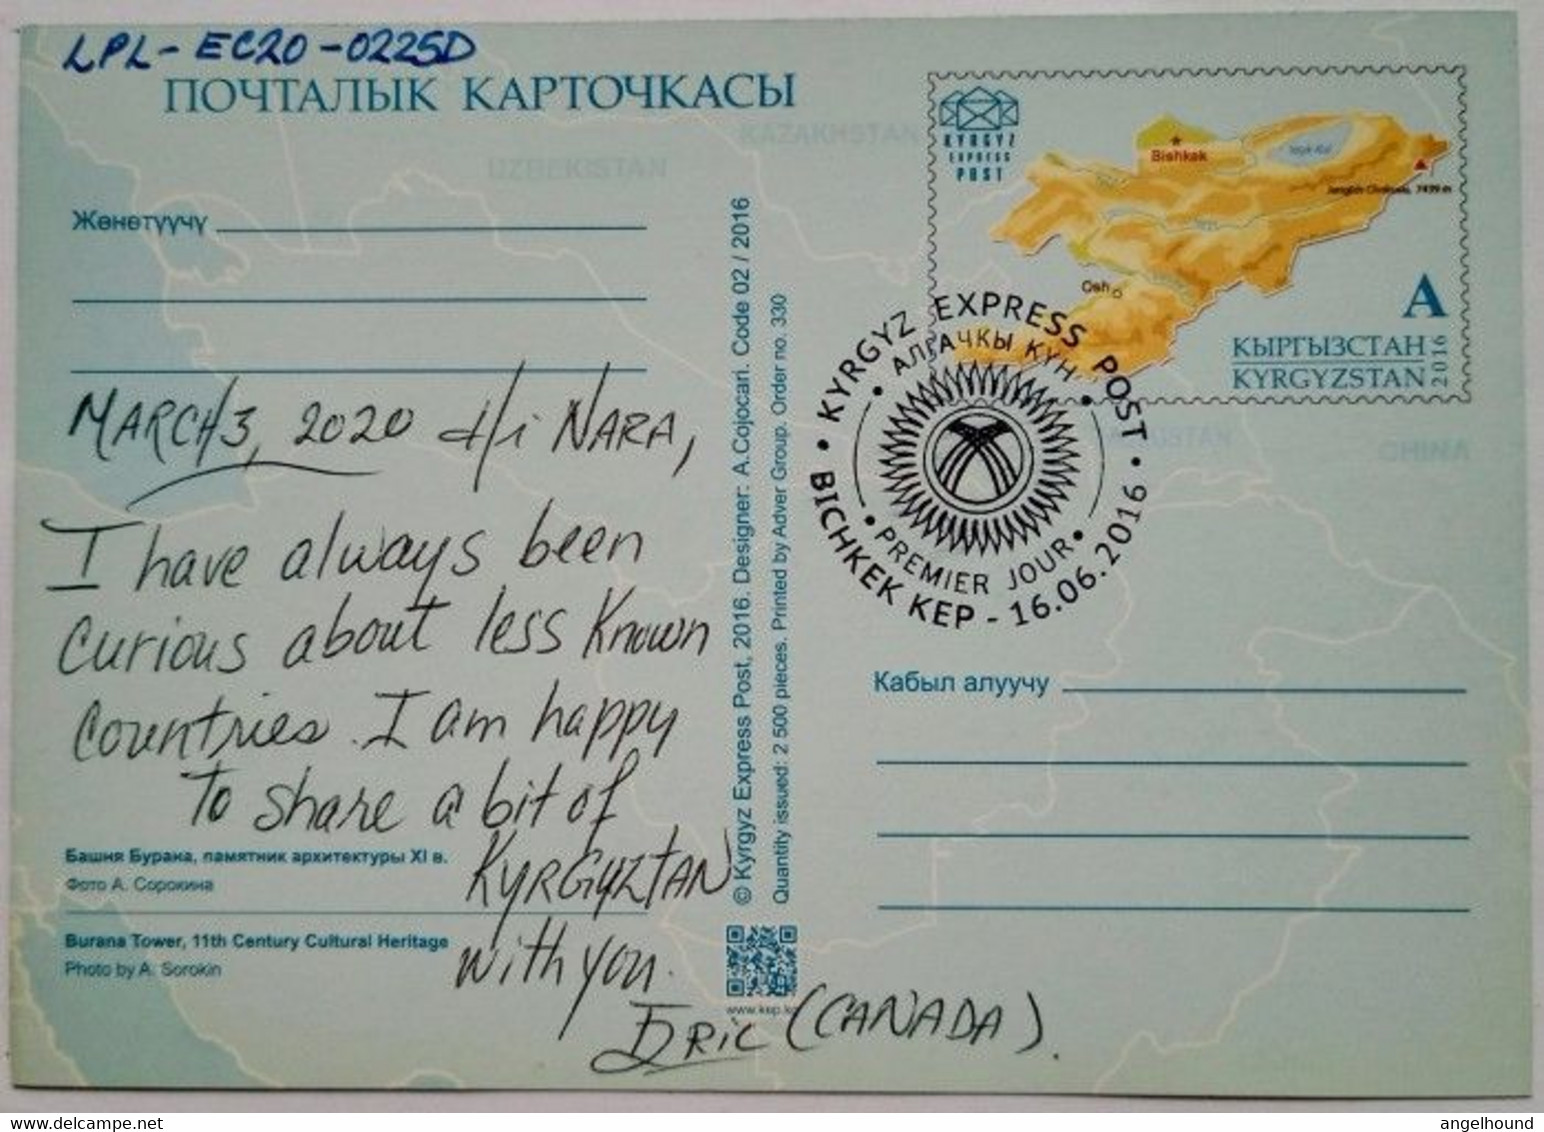 LPL-EC20-0225D
ПОЧТАЛЫК КАРТОЧКАСЫ
KAZAKHSTAN
UZBEKISTAN
CHINA
KYRGYZ
EXPRESS
POST
Bishkek
Issyk-Kul
Osh
A
КЫРГЫЗСТАН
KYRGYZSTAN
2016
Жөнөтүүчү
• KYRGYZ EXPRESS POST •
• АЛГАЧКЫ КҮН •
• PREMIER JOUR •
BICHKEK KEP - 16.06.2016
MARCH 3, 2020 Hi NARA,
I have always been
curious about less known
countries. I am happy
To share a bit of
KYRGYZTAN
with you.
ERIC (CANADA).
Башня Бурана, памятник архитектуры XI в.
Фото А. Сорокина
Burana Tower, 11th Century Cultural Heritage
Photo by A. Sorokin
© Kyrgyz Express Post, 2016. Designer: A.Cojocari. Code 02 / 2016
Quantity issued: 2 500 pieces. Printed by Adver Group. Order no. 330
www.kep.kg
Кабыл алуучу
delcampe.net
angelhound